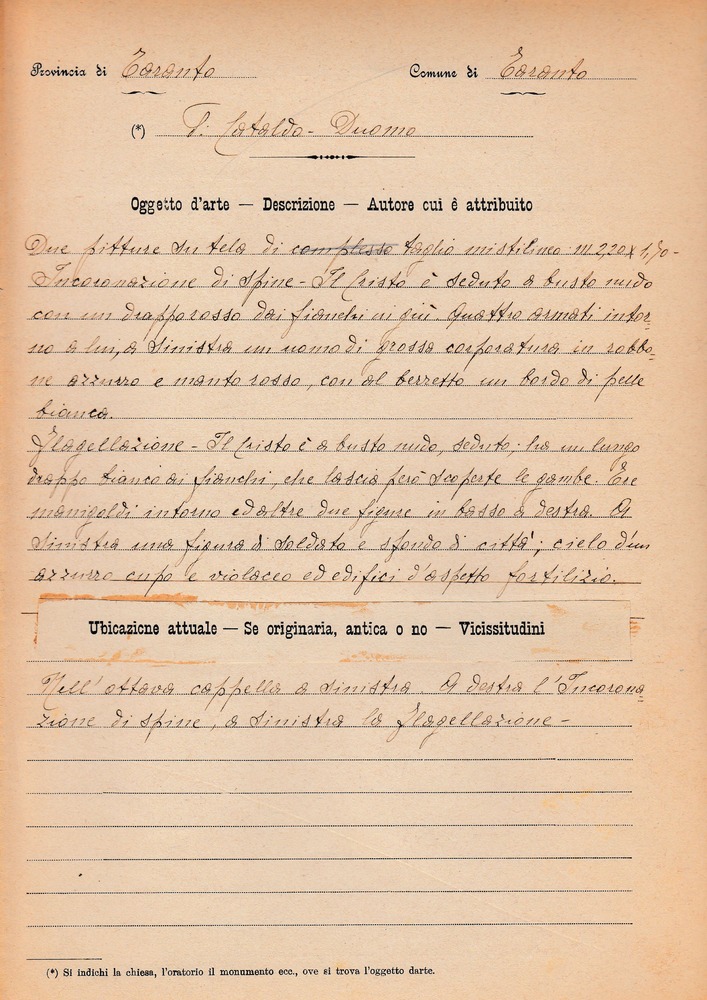 Provincia di Taranto Comune di Taranto
(*) S. Cataldo - Duomo
Oggetto d'arte — Descrizione — Autore cui è attribuito
Due pitture su tela di complesso taglio mistilineo: m 2,20 x 1,70 -
Incoronazione di spine - Il Cristo è seduto a busto nudo
con un drappo rosso dai fianchi in giù. Quattro armati intor=
no a lui, a sinistra un uomo di grossa corporatura in robbo=
ne azzurro e manto rosso, con al berretto un bordo di pelle
bianca.
Flagellazione - Il Cristo è a busto nudo, seduto; ha un lungo
drappo bianco ai fianchi, che lascia però scoperte le gambe. Tre
manigoldi intorno ed altre due figure in basso a destra. A
sinistra una figura di soldato e sfondo di città; cielo d'un
azzurro cupo e violaceo ed edifici d'aspetto fortilizio.
Ubicazione attuale — Se originaria, antica o no — Vicissitudini
Nell'ottava cappella a sinistra. A destra l'Incorona=
zione di spine, a sinistra la Flagellazione -
(*) Si indichi la chiesa, l'oratorio il monumento ecc., ove si trova l'oggetto darte.